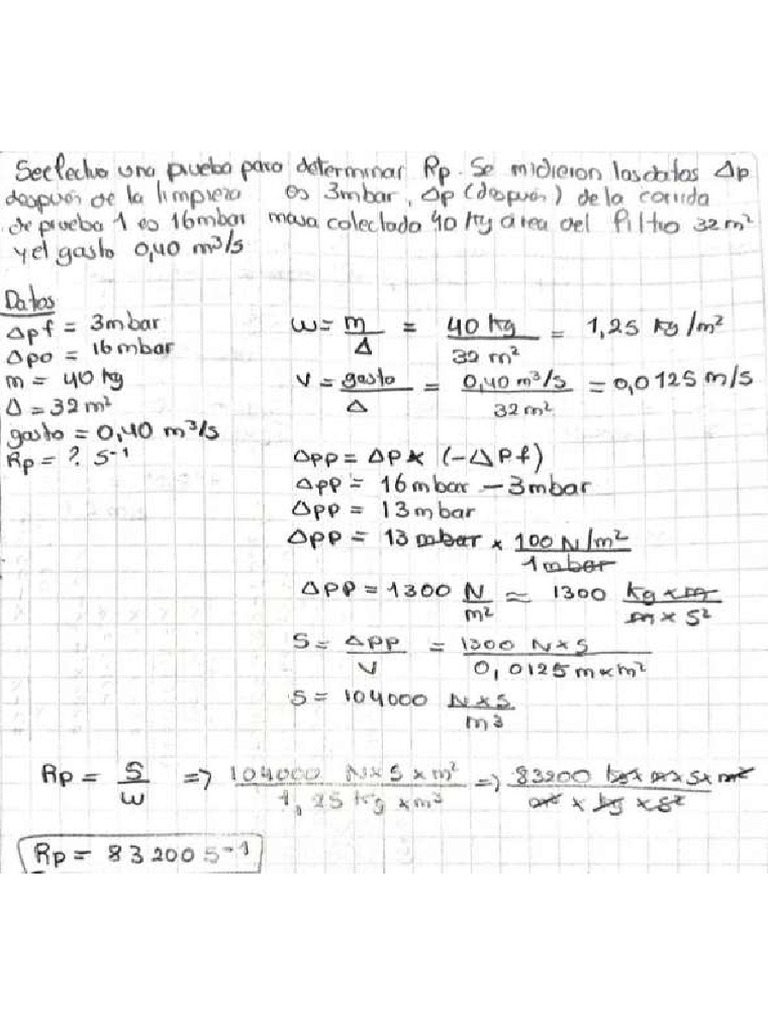 Se efectuo una prueba para determinar Rp. Se midieron los datos Δp
después de la limpieza es 3mbar, Δp (después) de la corrida
de prueba 1 es 16mbar masa colectada 40 Kg área del filtro 32 m²
y el gasto 0,40 m³/s
Datos
Δpf = 3mbar
Δpo = 16mbar
m = 40 kg
Δ = 32 m²
gasto = 0,40 m³/s
Rp = ? s⁻¹
W = m/Δ = 40 kg/32 m² = 1,25 Kg/m²
V = gasto/Δ = 0,40 m³/s/32 m² = 0,0125 m/s
ΔPP = ΔPx (-ΔPf)
ΔPP = 16mbar - 3mbar
ΔPP = 13mbar
ΔPP = 13 mbar x 100 N/m²/1 mbar
ΔPP = 1300 N/m² ≈ 1300 kg x m/m x s²
S = ΔPP/V = 1300 N x s/0,0125 m x m²
S = 104000 N x s/m³
Rp = S/W => 104000 N x s x m²/1,25 kg x m³ => 83200 kg x m x s x m²/m² x kg x s²
Rp = 83200 s⁻¹